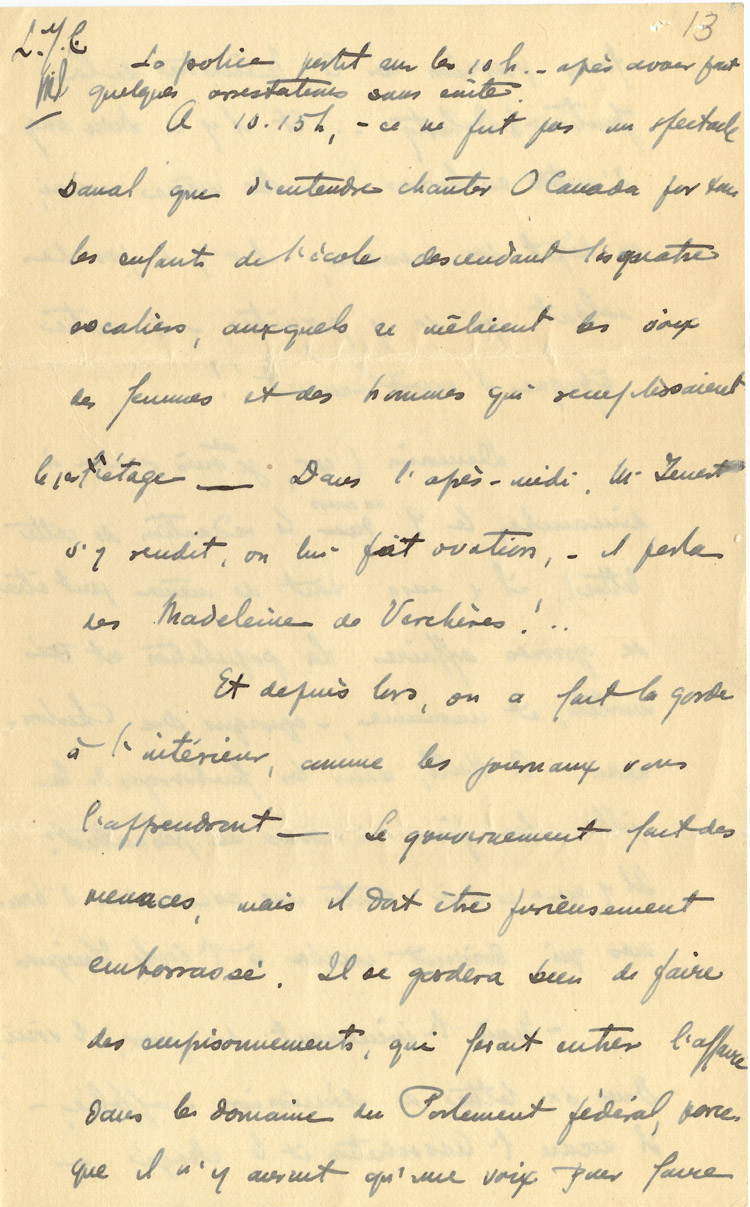 13
La police partit sur les 10 h. - après avoir fait
quelques arrestations sans suite.
A 10.15 h, - ce ne fut pas un spectacle
banal que d'entendre chanter O Canada par tous
les enfants de l'école descendant les quatre
escaliers, auxquels se mêlaient les voix
des femmes et des hommes qui remplissaient
le 1er étage — Dans l'après-midi, Mr
s'y rendit, on lui fait ovation, - il parla
des Madeleine de Verchères !..
Et depuis lors, on a fait la garde
à l'intérieur, comme les journaux vous
l'apprendront — Le gouvernement fait des
menaces, mais il doit être furieusement
embarrassé. Il se gardera bien de faire
des emprisonnements, qui ferait entrer l'affaire
dans le domaine du Parlement fédéral, parce
que il n'y aurait qu'une voix pour faire